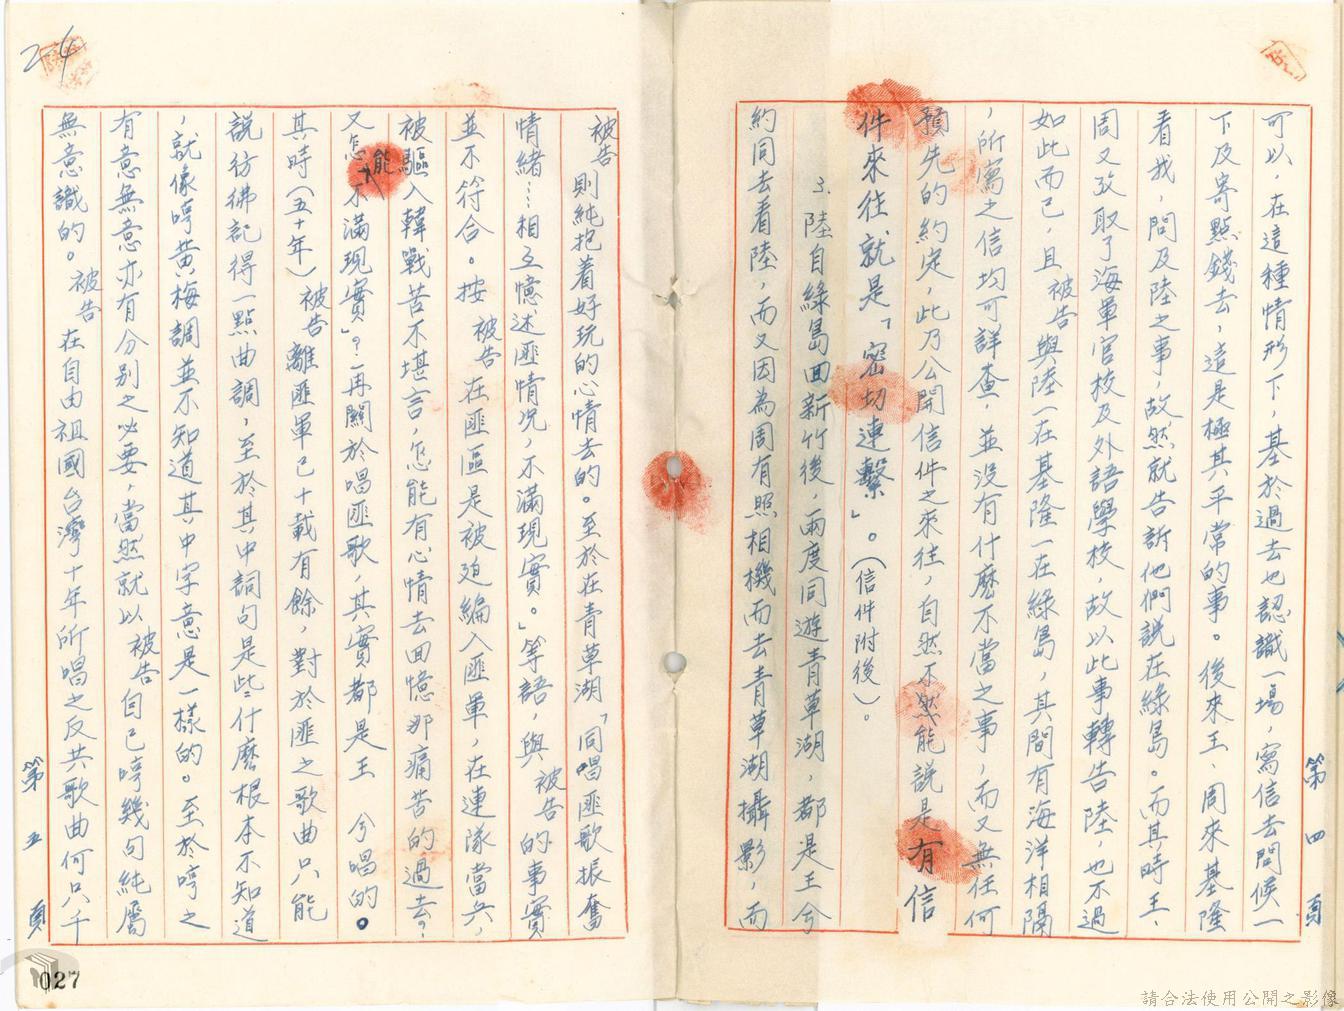 可以，在這種情形下，基於過去也認識一場，寫信去問候一
下及寄點錢去，這是極其平常的事。後來王、周來基隆
看我，問及陸之事，故然就告訴他們說在綠島。而其時王、
周又攷取了海軍官校及外語學校，故以此事轉告陸，也不過
如此而已，且被告與陸一在基隆一在綠島，其間有海洋相隔
，所寫之信均可詳查，並沒有什麽不當之事，而又無任何
預先的約定，此乃公開信件之來往，自然不能說是有信
件來往就是「密切連繫」。（信件附後）。
3、陸自綠島回新竹後，兩度同遊青草湖，都是王兮
約同去看陸，而又因為周有照相機而去青草湖攝影，而
第四頁
被告則純抱着好玩的心情去的。至於在青草湖「同唱匪歌振奮
情緒……相互憶述匪情况，不滿現實。」等語，與被告的事實
並不符合。按被告在匪區是被廹編入匪軍，在連隊當兵，
被驅入韓戰苦不堪言，怎能有心情去回憶那痛苦的過去？
又怎能不滿現實」？再關於唱匪歌，其實都是王兮唱的。
其時（五十年）被告離匪軍已十載有餘，對於匪之歌曲只能
說彷彿記得一點曲調，至於其中詞句是些什麽根本不知道
，就像哼黃梅調並不知道其中字意是一樣的。至於哼之
有意無意亦有分別之必要，當然就以被告自己哼幾句純屬
無意識的。被告在自由祖國台灣十年所唱之反共歌曲何只千
第五頁
24
027
請合法使用公開之影像